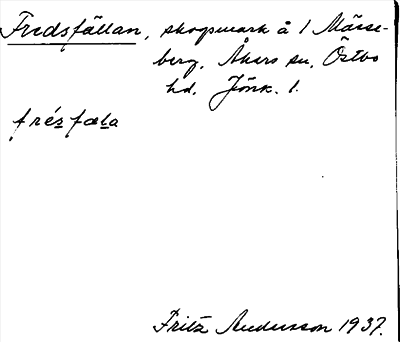 Fredsfällan, skogsmark å 1 Mässe-
berg, Åkers sn, Östbo
hd. Jönk. l.
frés fæla
Fritz Andersson 1937.